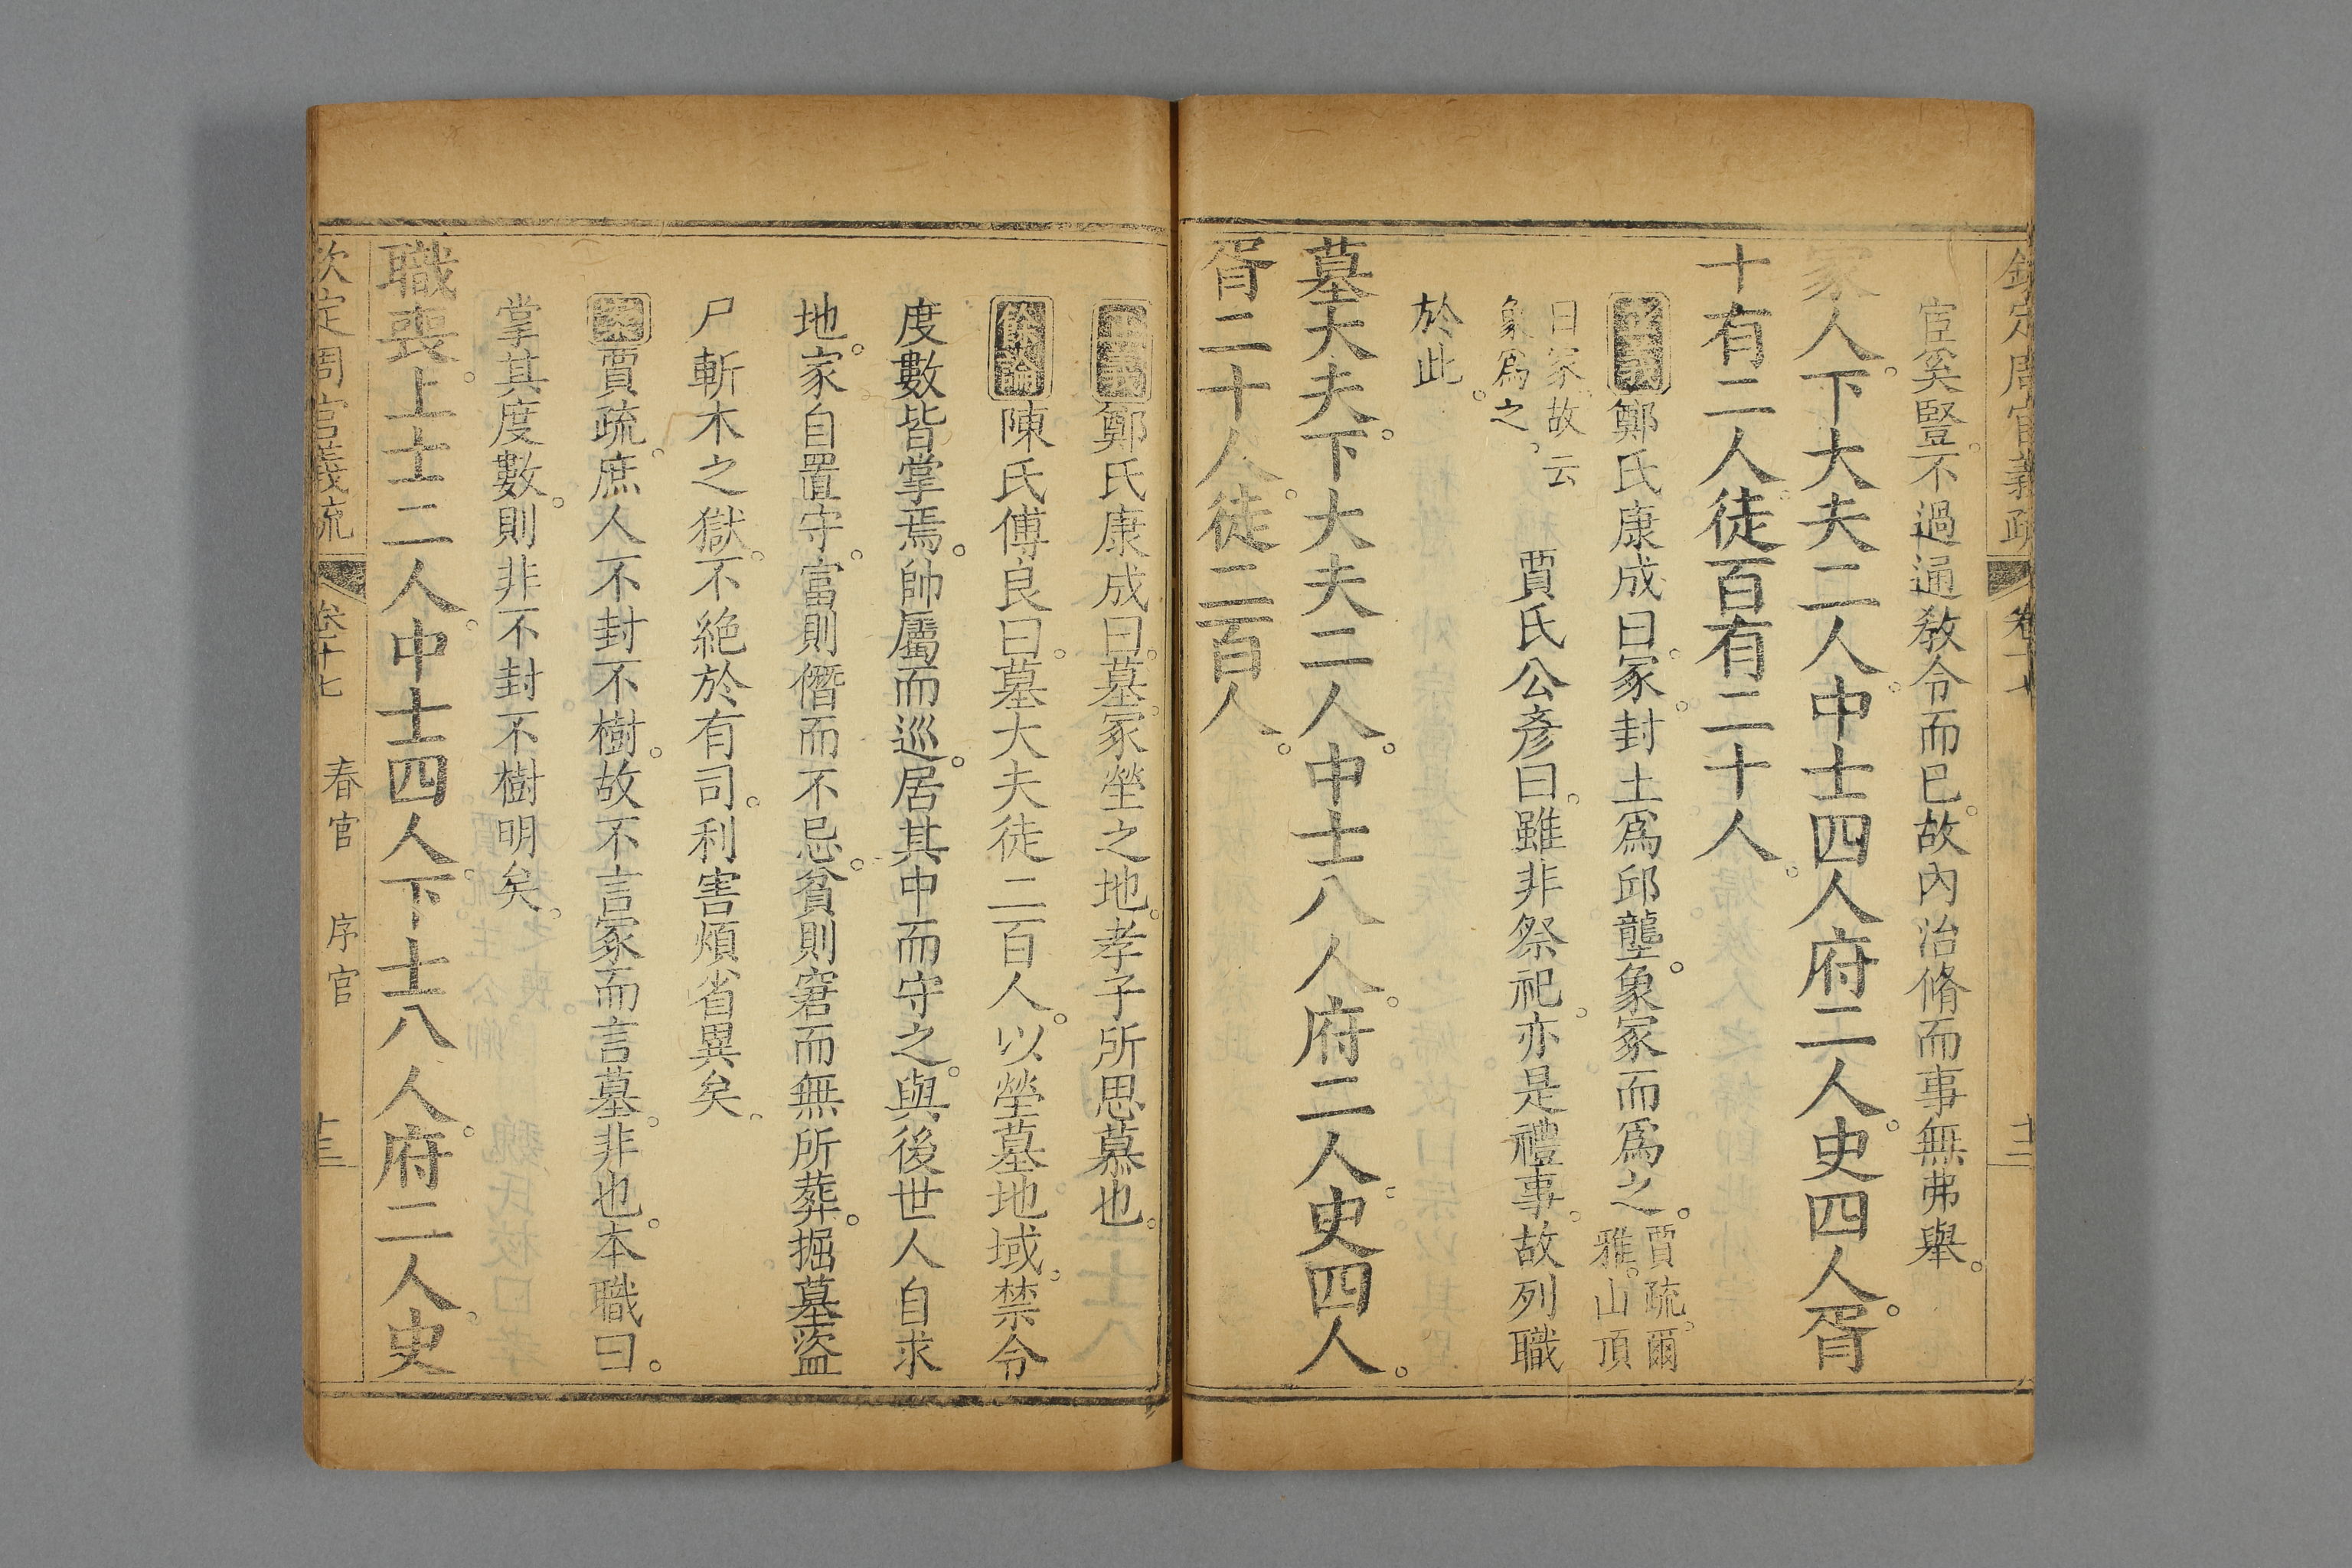 欽定周官義疏 卷十七 十二
宦奚豎。不過通教令而已。故內治脩而事無弗舉。
冢人。下大夫二人。中士四人。府二人。史四人。胥
十有二人。徒百有二十人。
正義 鄭氏康成曰。冢。封土爲邱壟。象冢而爲之。賈疏。爾雅。山頂
曰冢。故云象爲之。 賈氏公彥曰。雖非祭祀。亦是禮事。故列職
於此。
墓大夫。下大夫二人。中士八人。府二人。史四人。
胥二十人。徒二百人。
正義 鄭氏康成曰。墓。冢塋之地。孝子所思慕也。
餘論 陳氏傅良曰。墓大夫徒二百人。以塋墓地域。禁令
度數皆掌焉。帥屬而巡。居其中而守之。與後世人自求
地。家自置守。富則僭而不忌。貧則窘而無所葬。掘墓盜
尸斬木之獄。不絕於有司。利害煩省異矣。
賈疏。庶人不封不樹。故不言冢而言墓。非也。本職曰。
掌其度數。則非不封不樹明矣。
職喪。上士二人。中士四人。下士八人。府二人。史
欽定周官義疏 卷十七 春官 序官 十三